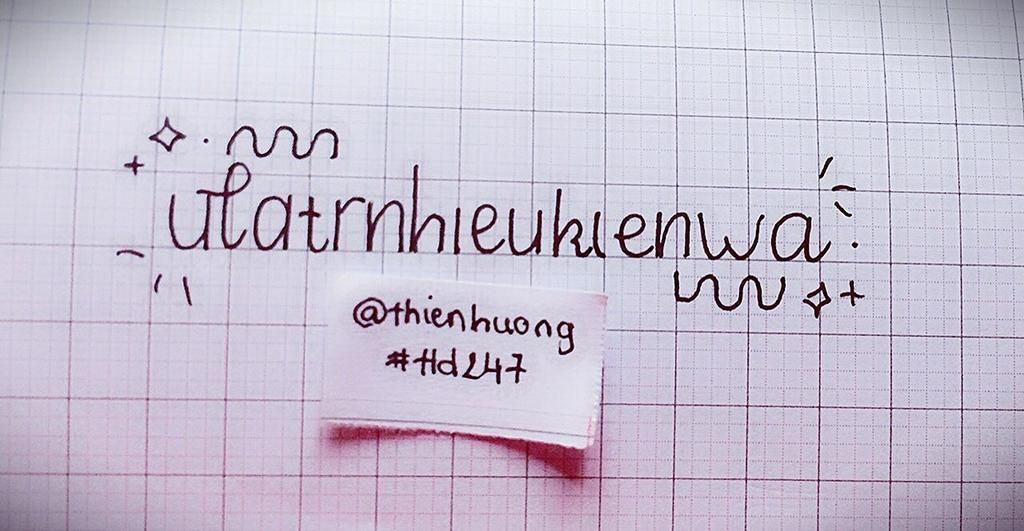 ulatrnhieukienwa
@thienhuong
#tld247